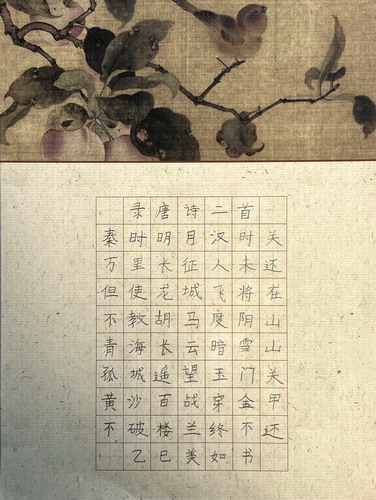 录唐诗二首
秦时明月汉时关
万里长征人未还
但使龙城飞将在
不教胡马度阴山
青海长云暗雪山
孤城遥望玉门关
黄沙百战穿金甲
不破楼兰终不还
乙巳美如书